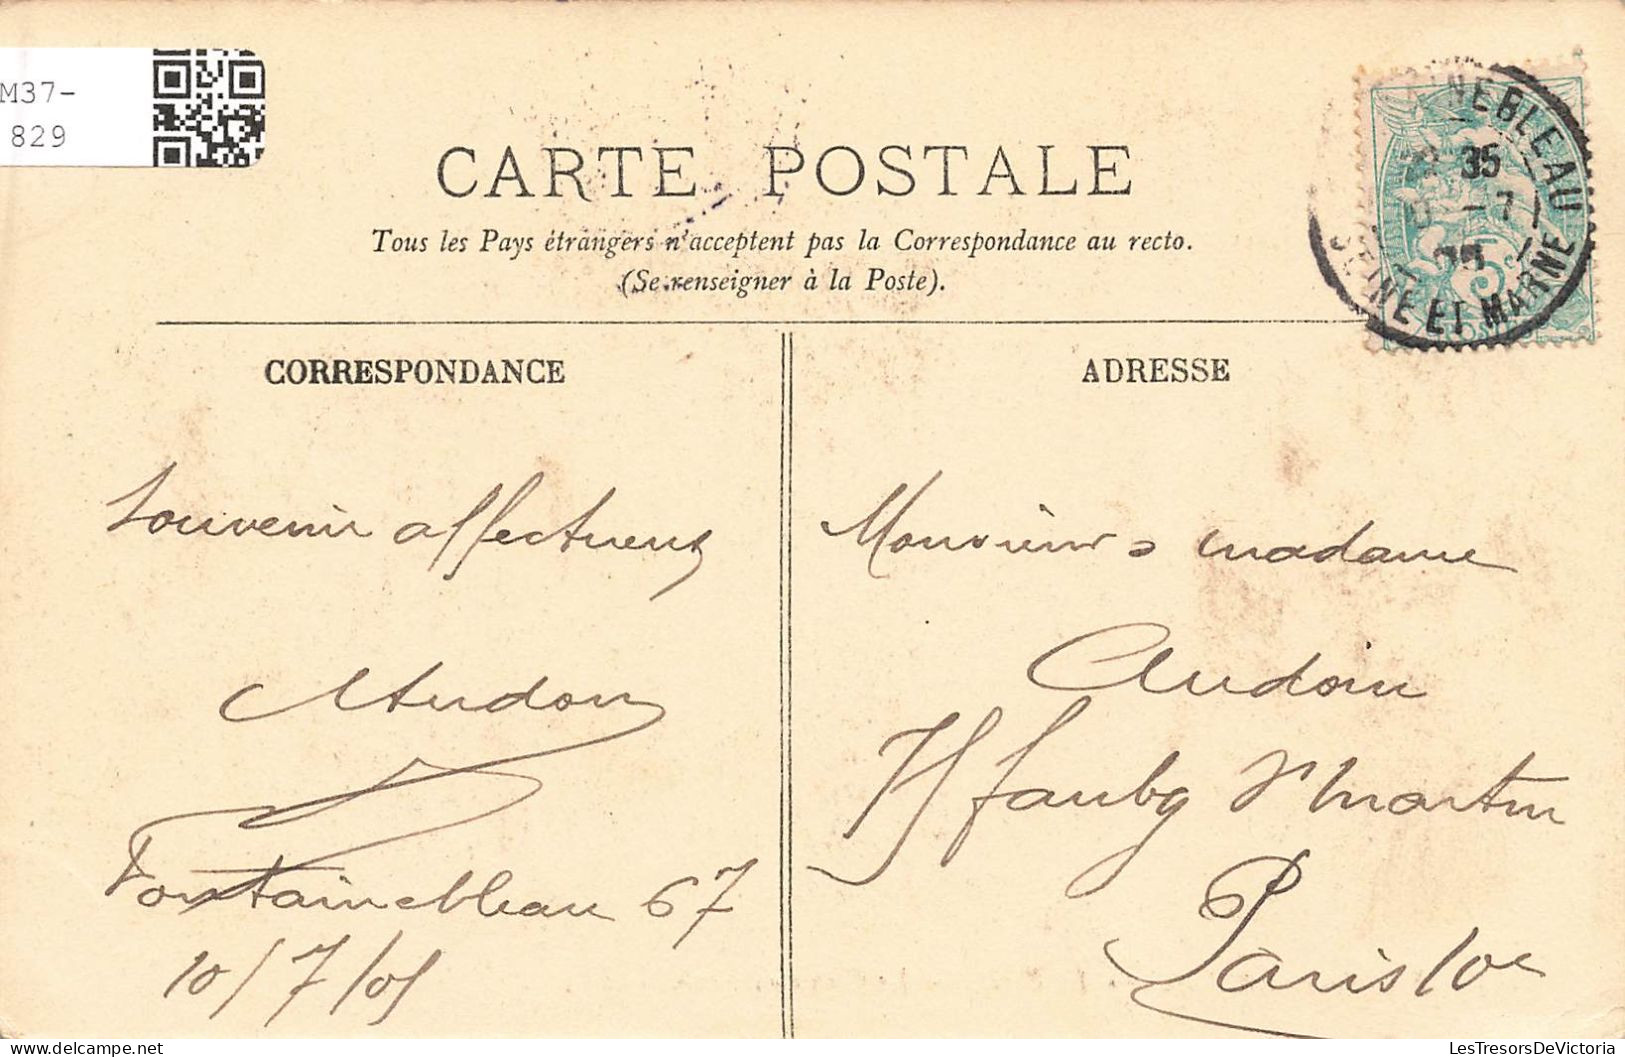 M37-
829
CARTE POSTALE
Tous les Pays étrangers n'acceptent pas la Correspondance au recto.
(Se renseigner à la Poste).
NEBLEAU
35
-7
SEINE ET MARNE
5
CORRESPONDANCE
ADRESSE
Souvenir affectueux
Fontainebleau 67
10/7/05
Monsieur & madame
Audoin
faubg St martin
Paris 10e
LesTresorsDeVictoria